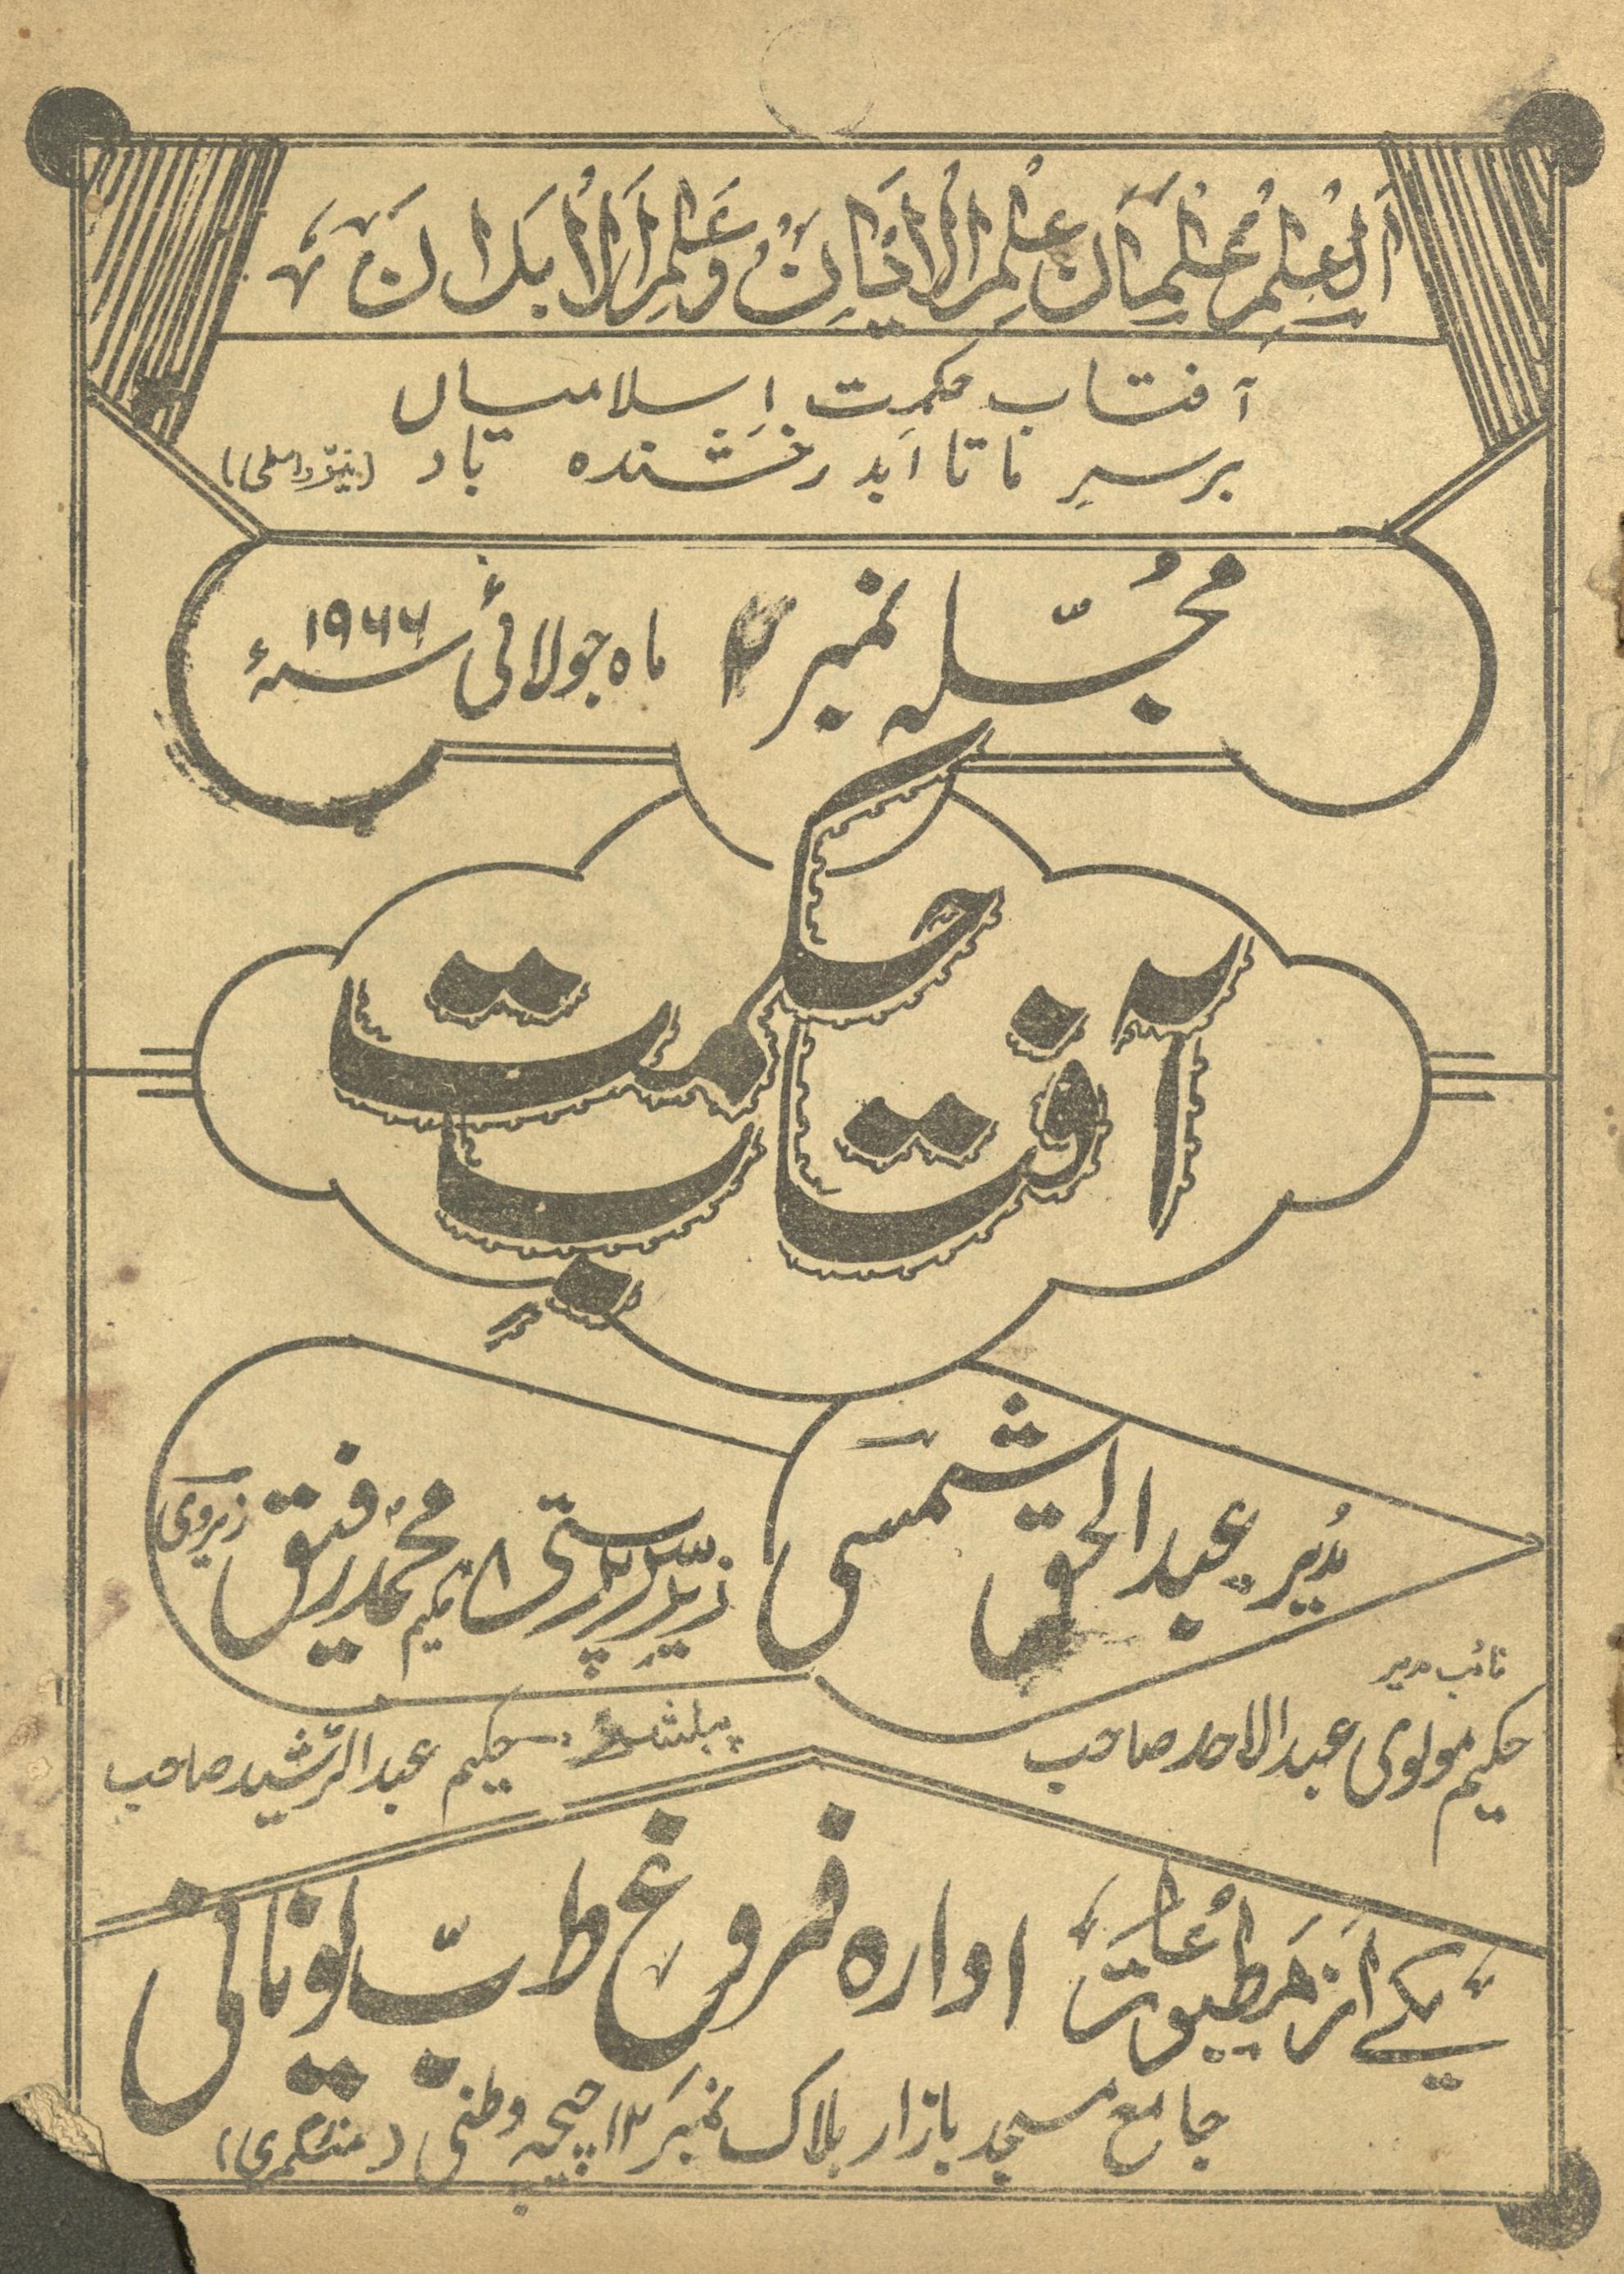 اَلْعِلْمُ عِلْمَانِ عِلْمُ الْاَدْيَانِ وَعِلْمُ الْاَبْدَانِ
آفتابِ حکمتِ اسلامیاں
بر سرِ ما تا ابد رخشندہ باد
مجلّہ نمبر ماہ جولائی ۱۹۶۶ سنہء
آفتابِ حکمت
مُدیر عبدالحق شمسی
زیرِ سرپرستی حکیم محمد رفیق زیروی
نائب مدیر
حکیم مولوی عبدالاحد صاحب
پبلشر: حکیم عبدالرّشید صاحب
یکے از مطبوعات ادارہ فروغِ طبِّ یونانی
جامع مسجد بازار بلاک نمبر ۱۲ چیچہ وطنی (منٹگمری)